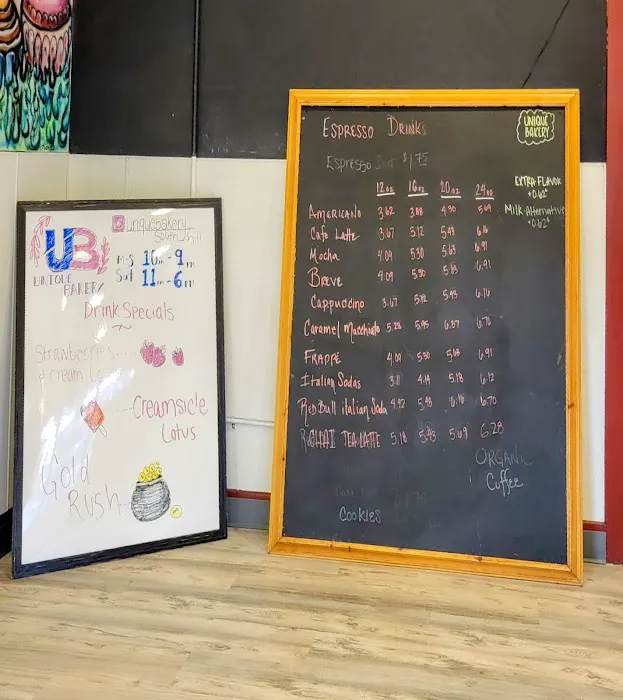 UB
UNIQUE
BAKERY
uniquebakery
South Hill
M-S 10am-9pm
Sat 11am-6pm
Drink Specials
Strawberries
& cream
Creamsicle
Lotus
Gold
Rush
ESPRESSO DRINKS
UNIQUE
BAKERY
Espresso $1.75
12oz 16oz 20oz 24oz
EXTRA FLAVOR
+0.62¢
Milk Alternative
+0.62¢
AMERICANO 3.62 3.88 4.30 5.69
Cafe Latte 3.67 5.12 5.43
Mocha 4.09 5.30 5.63 6.91
Breve 4.09 5.30 5.63 6.91
Cappuccino 3.67 5.12 5.43 6.16
Caramel Macchiato 5.25 5.95 6.70
FRAPPÉ 4.09 5.30 6.91
Italian Sodas 4.14 5.18 6.12
Red Bull italian Soda 4.92 5.45 6.70
CHAI TEA LATTE 5.18 5.43 5.69 6.28
ORGANIC
Coffee
COOKIES